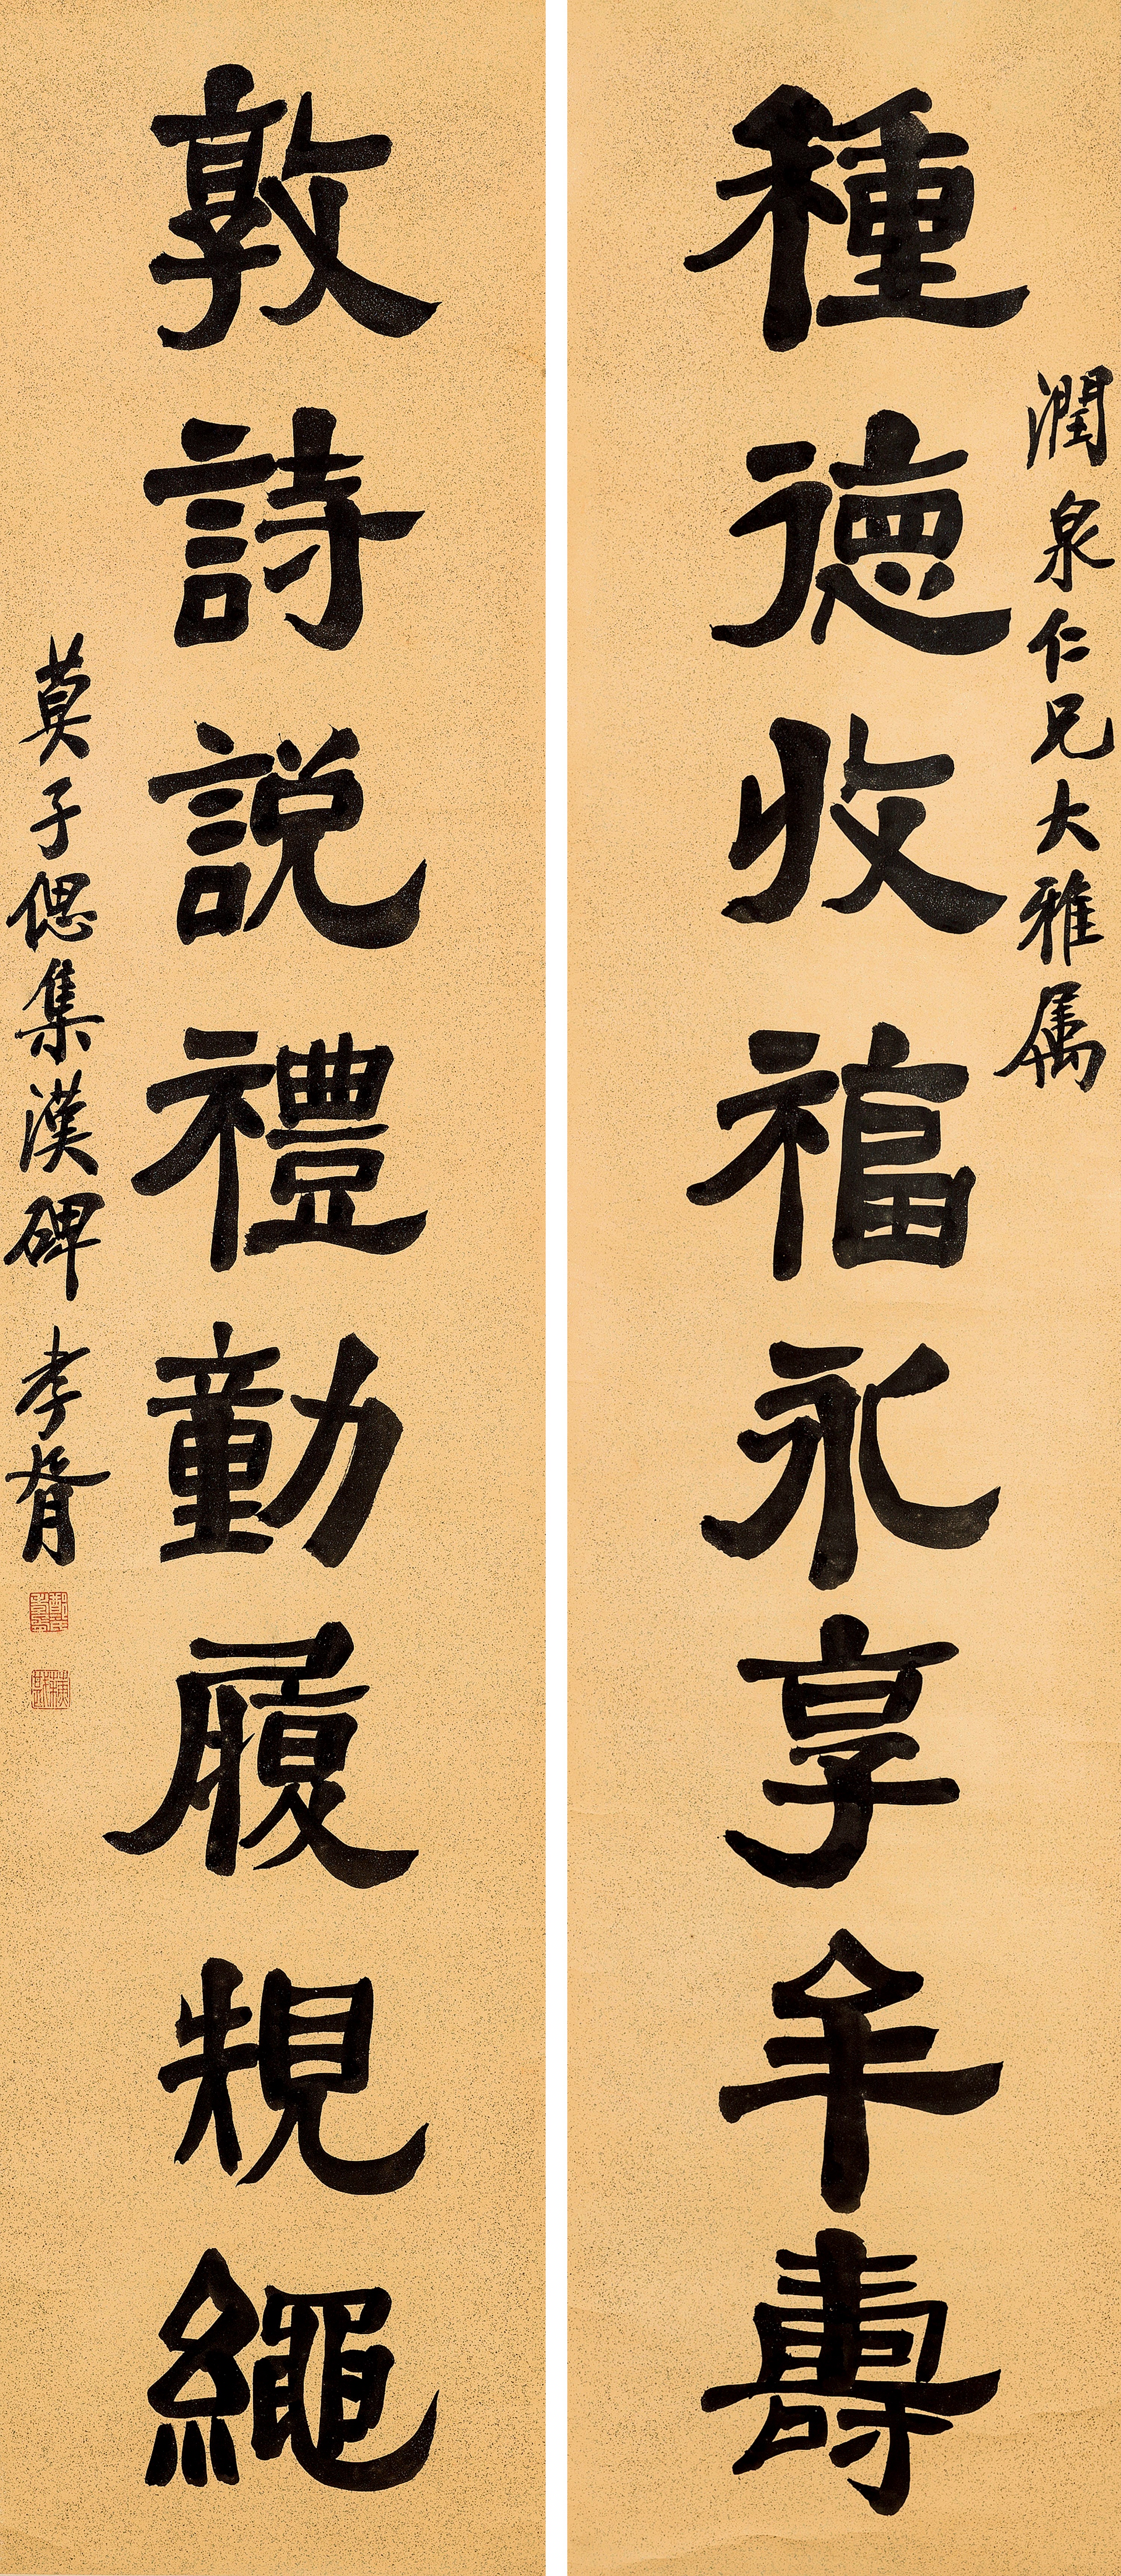 潤泉仁兄大雅属
種徳收福永享年壽
敦詩説禮動履規繩
莫子偲集漢碑 孝胥